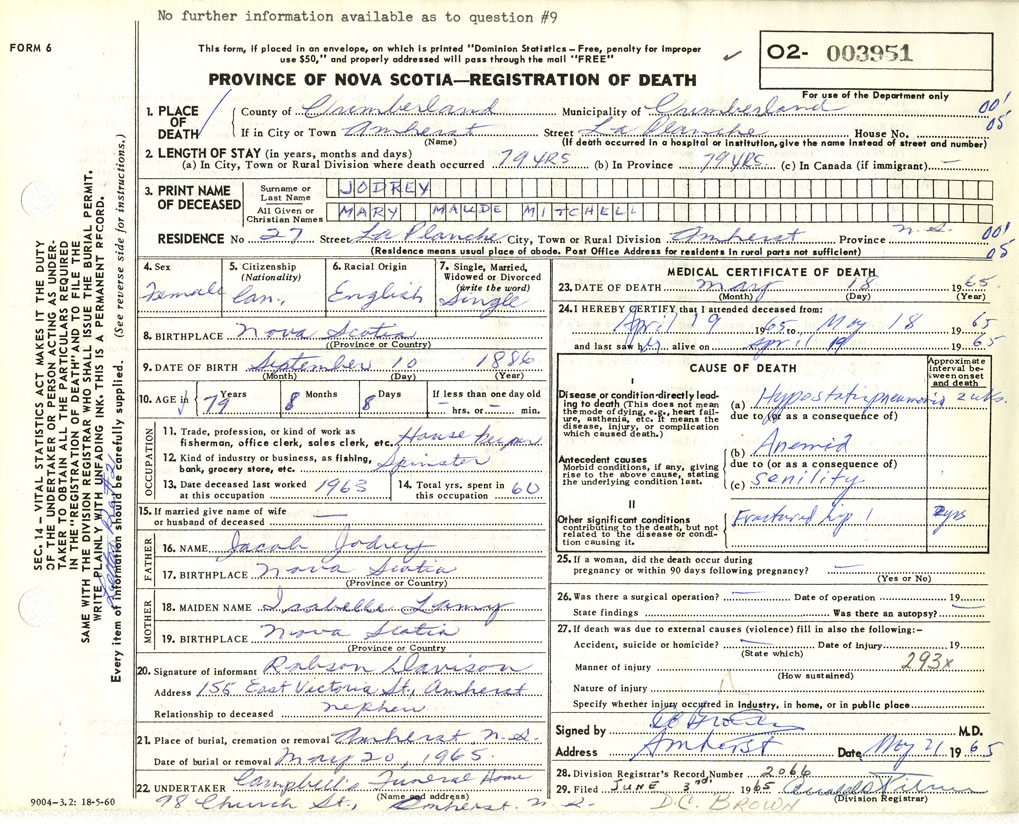 No further information available as to question #9
FORM 6
This form, if placed in an envelope, on which is printed "Dominion Statistics – Free, penalty for improper
use $50," and properly addressed will pass through the mail "FREE"
✓
O2- 003951
PROVINCE OF NOVA SCOTIA—REGISTRATION OF DEATH
For use of the Department only
1. PLACE OF DEATH
County of Cumberland Municipality of Cumberland 00'
If in City or Town Amherst Street La Planche House No. 05
(Name) (If death occurred in a hospital or institution, give the name instead of street and number)
2. LENGTH OF STAY (in years, months and days)
(a) In City, Town or Rural Division where death occurred 79 YRS (b) In Province 79 YRS. (c) In Canada (if immigrant) —
3. PRINT NAME OF DECEASED
Surname or Last Name JODREY
All Given or Christian Names MARY MAUDE MITCHELL
RESIDENCE No 27 Street La Planche City, Town or Rural Division Amherst Province N.S. 00' 05
(Residence means usual place of abode. Post Office Address for residents in rural parts not sufficient)
4. Sex Female
5. Citizenship (Nationality) Can.
6. Racial Origin English
7. Single, Married, Widowed or Divorced (write the word) Single
8. BIRTHPLACE Nova Scotia
(Province or Country)
9. DATE OF BIRTH September 10 1886
(Month) (Day) (Year)
10. AGE in 79 Years 8 Months 8 Days If less than one day old — hrs. or — min.
OCCUPATION
11. Trade, profession, or kind of work as
fisherman, office clerk, sales clerk, etc. House keeper
12. Kind of industry or business, as fishing,
bank, grocery store, etc. Spinster
13. Date deceased last worked at this occupation 1963
14. Total yrs. spent in this occupation 60
15. If married give name of wife
or husband of deceased —
FATHER
16. NAME Jacob Jodrey
17. BIRTHPLACE Nova Scotia
(Province or Country)
MOTHER
18. MAIDEN NAME Isabelle Lamy
19. BIRTHPLACE Nova Scotia
(Province or Country)
20. Signature of informant Robson Davison
Address 155 East Victoria St, Amherst
Relationship to deceased nephew
21. Place of burial, cremation or removal Amherst N.S.
Date of burial or removal May 20, 1965.
22. UNDERTAKER Campbell's Funeral Home
(Name and address)
98 Church St., Amherst N.S.
9004–3.2: 18-5-60
MEDICAL CERTIFICATE OF DEATH
23. DATE OF DEATH May 18 1965
(Month) (Day) (Year)
24. I HEREBY CERTIFY that I attended deceased from:
April 19 1965 to May 18 1965
and last saw h alive on April 19 1965
CAUSE OF DEATH
Approximate interval between onset and death
I
Disease or condition directly leading to death (This does not mean the mode of dying, e.g., heart failure, asthenia, etc. It means the disease, injury, or complication which caused death.)
(a) Hypostatic pneumonia 2 wks.
due to (or as a consequence of)
Antecedent causes
Morbid conditions, if any, giving rise to the above cause, stating the underlying condition last.
(b) Anemia
due to (or as a consequence of)
(c) senility
II
Other significant conditions
contributing to the death, but not related to the disease or condition causing it.
Fractured hip yrs
25. If a woman, did the death occur during
pregnancy or within 90 days following pregnancy? —
(Yes or No)
26. Was there a surgical operation? — Date of operation 19
State findings Was there an autopsy? —
27. If death was due to external causes (violence) fill in also the following:–
Accident, suicide or homicide? — Date of injury 19
(State which)
Manner of injury 293x
(How sustained)
Nature of injury
Specify whether injury occurred in industry, in home, or in public place
Signed by M.D.
Address Amherst Date May 21 1965
28. Division Registrar's Record Number 2066
29. Filed JUNE 3rd 1965
(Division Registrar)
D.C. BROWN
SEC. 14 – VITAL STATISTICS ACT MAKES IT THE DUTY
OF THE UNDERTAKER OR PERSON ACTING AS UNDER-
TAKER TO OBTAIN ALL THE PARTICULARS REQUIRED
IN THE "REGISTRATION OF DEATH" AND TO FILE THE
SAME WITH THE DIVISION REGISTRAR WHO SHALL ISSUE THE BURIAL PERMIT.
WRITE PLAINLY WITH UNFADING INK. THIS IS A PERMANENT RECORD.
Every item of information should be carefully supplied. (See reverse side for instructions.)